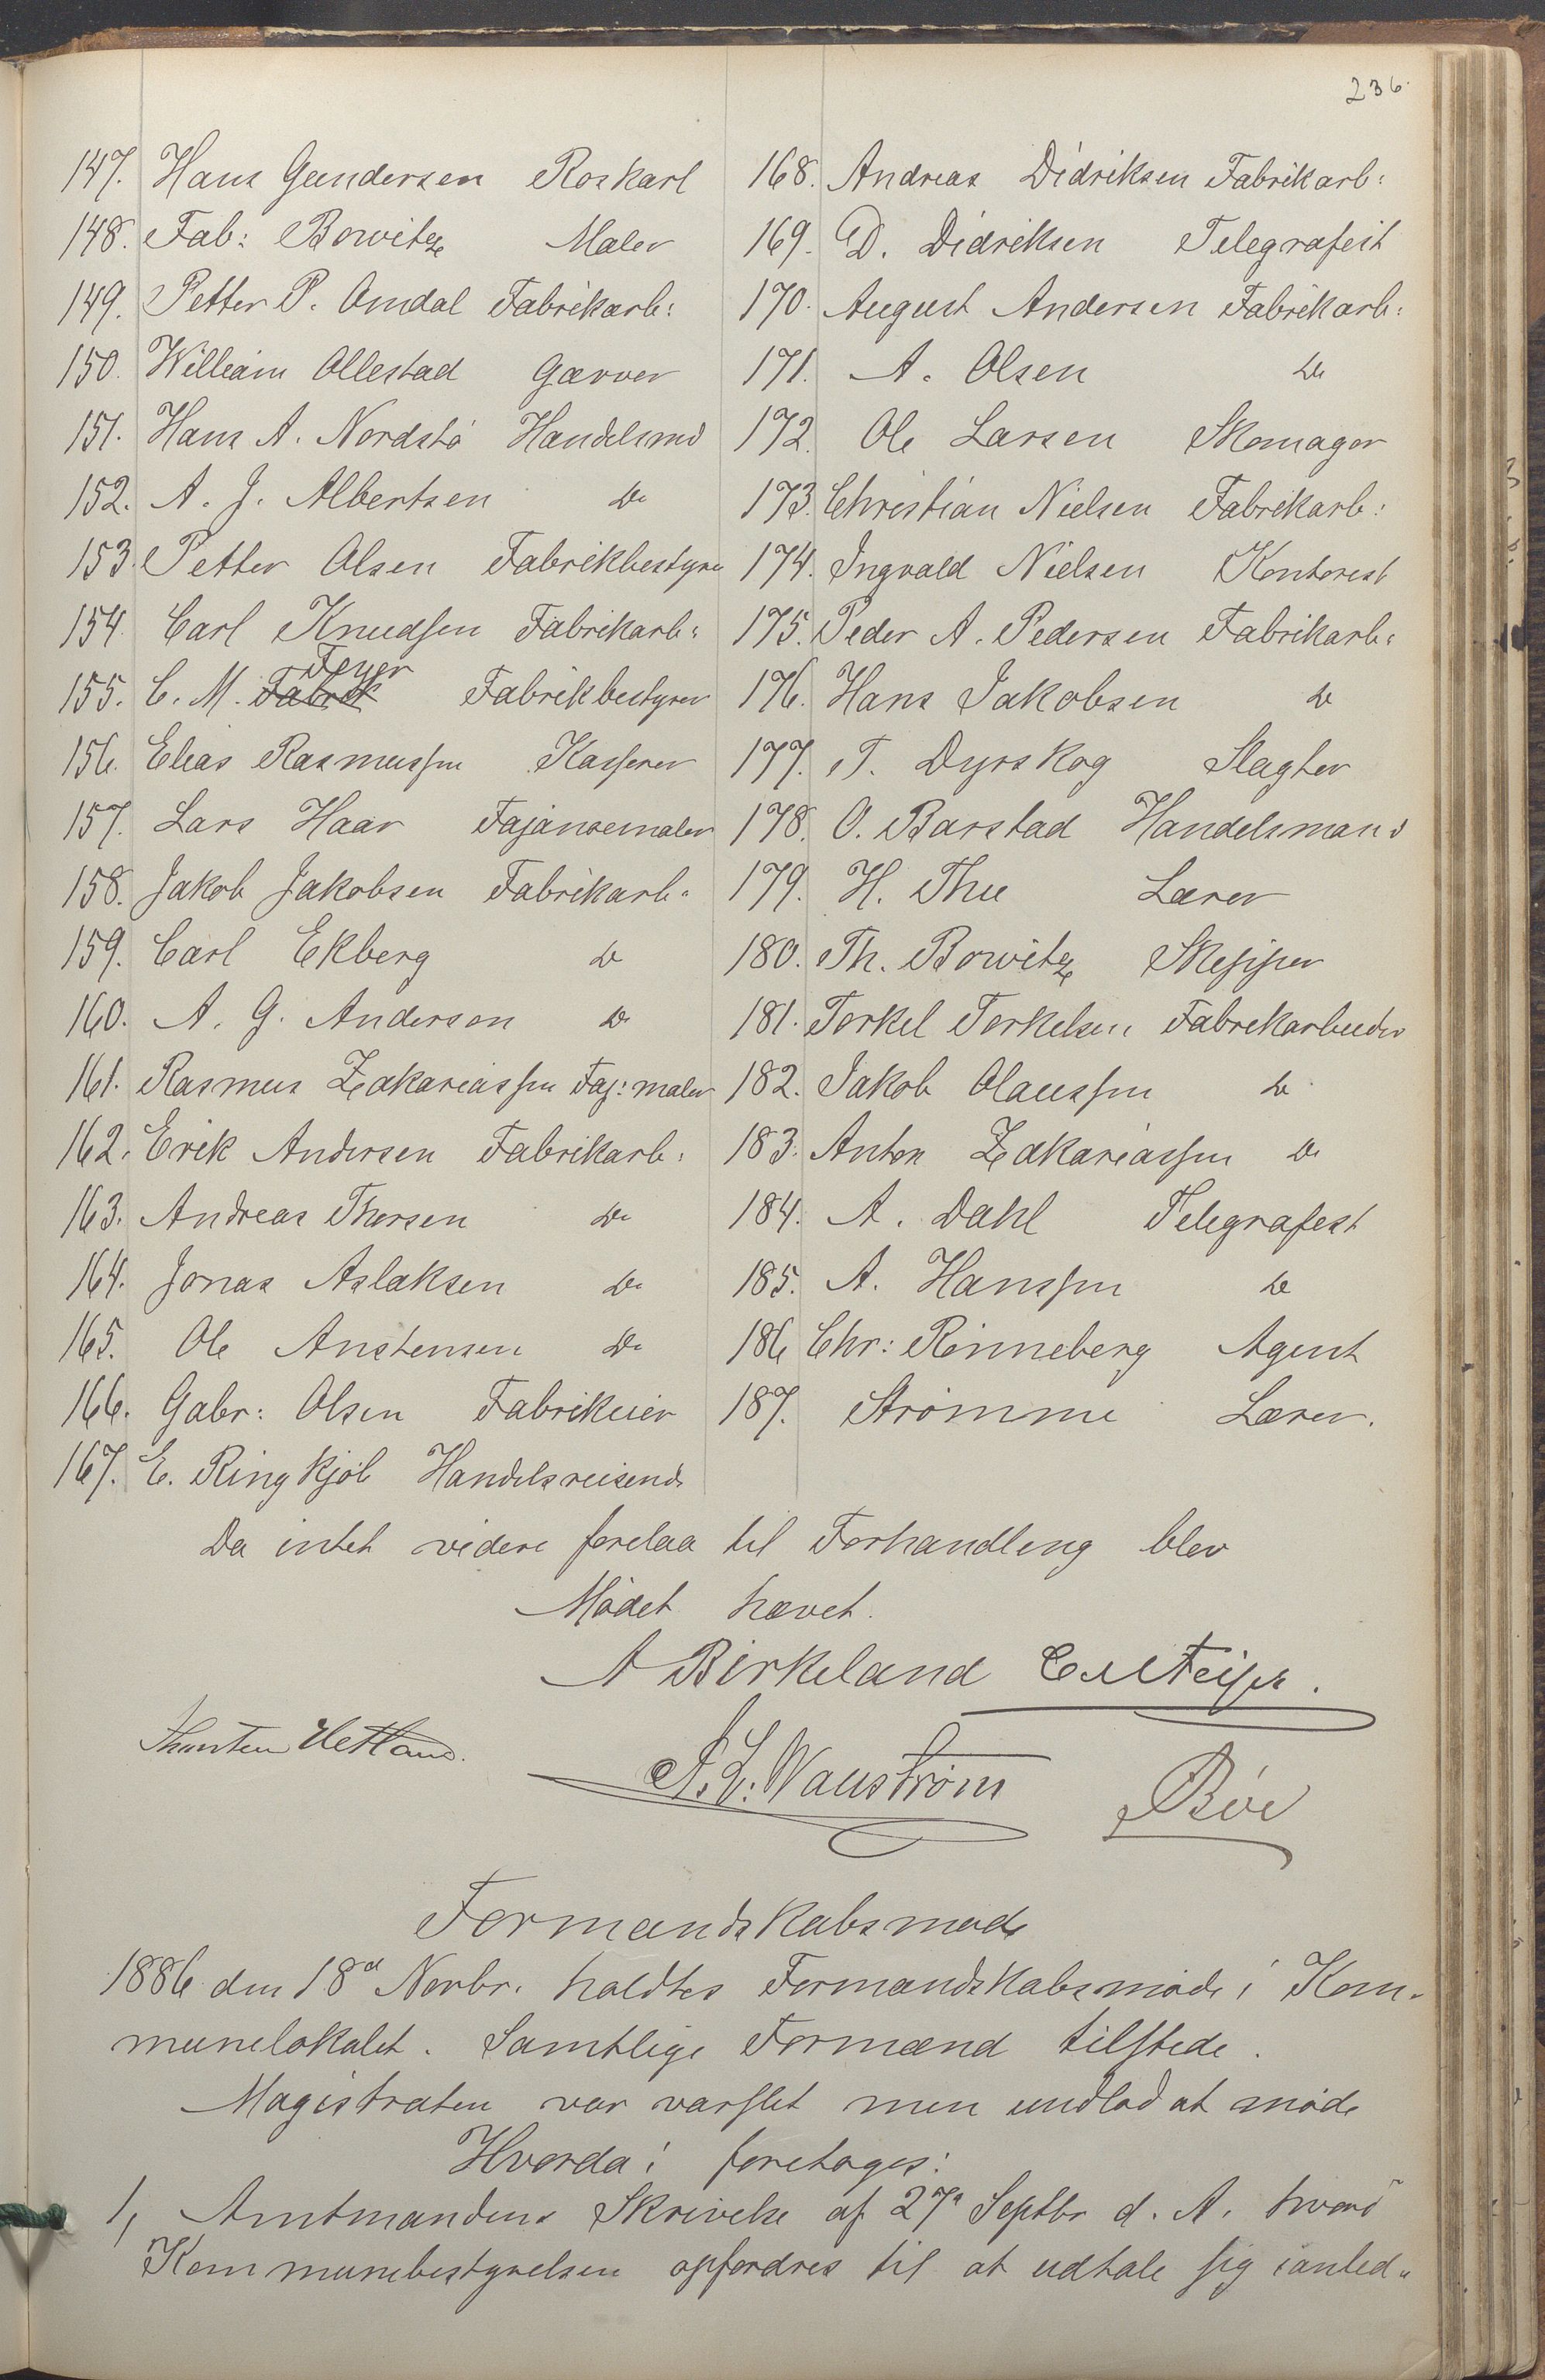 236.
147. Hans Gundersen Roskarl
148. Fab: Bowitz Maler
149. Petter P. Omdal Fabrikarb:
150. William Ollestad Garver
151. Hans A. Nordstö Handelsmd
152. A. J. Albertsen Do
153. Petter Olsen Fabrikbestyrer
154. Carl Knudsen Fabrikarb:
155. C. M. Fabrik Feyer Fabrikbestyrer
156. Elias Rasmussen Kasserer
157. Lars Haar Fajansemaler
158. Jakob Jakobsen Fabrikarb:
159. Carl Ekberg Do
160. A. G. Anderson Do
161. Rasmus Zakariassen Faj: maler
162. Erik Andersen Fabrikarb:
163. Andreas Thorsen Do
164. Jonas Aslaksen Do
165. Ole Anstensen Do
166. Gabr: Olsen Fabrikeier
167. E. Ringkjöb Handelsreisende
168. Andreas Didriksen Fabrikarb:
169. D. Didriksen Telegrafist
170. August Andersen Fabrikarb:
171. A. Olsen Do
172. Ole Larsen Skomager
173. Christian Nielsen Fabrikarb:
174. Ingvald Nielsen Kontorist
175. Peder A. Pedersen Fabrikarb:
176. Hans Jakobsen Do
177. T. Dyrskog Slagter
178. O. Barstad Handelsmand
179. H. Thu Lærer
180. Th. Bowitz Skipper
181. Torkel Torkelsen Fabrikarbeider
182. Jakob Olaussen Do
183. Anton Zakariassen Do
184. A. Dahl Telegrafist
185. A. Hanssen Do
186 Chr: Rinneberg Agent
187. Strömme Lærer.
Da intet videre forelaa til Forhandling blev
Mödet hævet.
A Birkeland C M Feyer.
Thorsten Hetland.
A. L. Wauström Böe
Formandskabsmöde
1886 den 18de Novbr. holdtes Formandskabsmöde i Kom-
munelokalet. Samtlige Formænd tilstede.
Magistraten var varslet men undlod at möde
Hvorda i foretoges:
1, Amtmandens Skrivelse af 27de Septbr d. A. hvori
Kommunebestyrelsen opfordres til at udtale sig i anled-